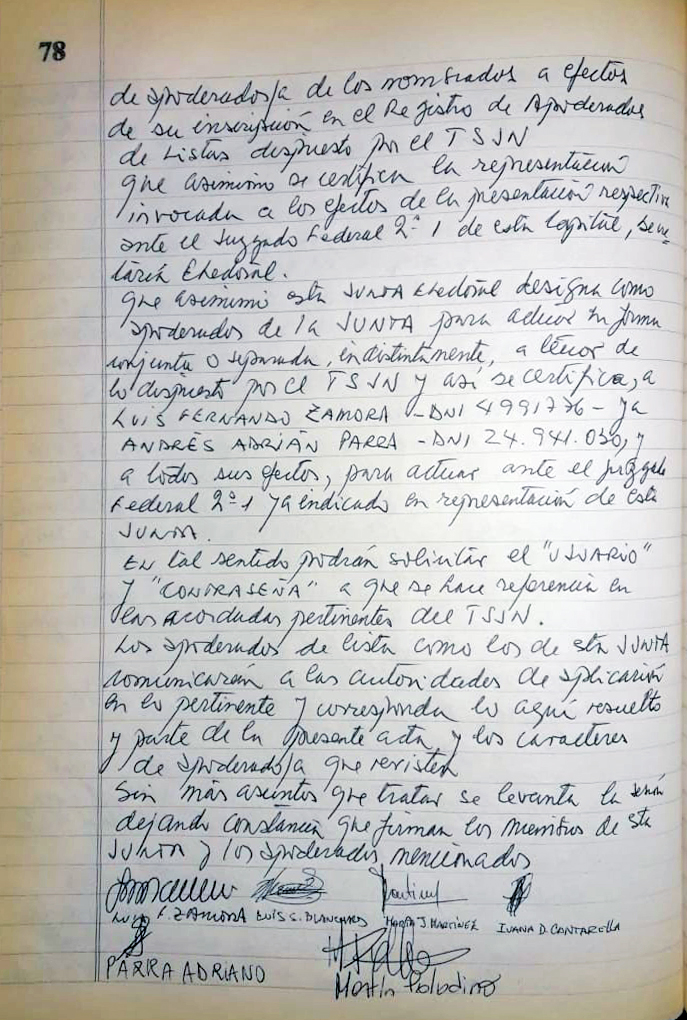 78
de apoderados/a de los nombrados a efectos
de su inscripción en el Registro de Apoderados
de Listas dispuesto por el TSJN
que asimismo se certifica la representación
invocada a los efectos de la presentación respectiva
ante el Juzgado Federal Nº 1 de esta Capital, Secre-
taría Electoral.
que asimismo esta JUNTA Electoral designa como
apoderados de la JUNTA para actuar en forma
conjunta o separada, indistintamente, a tenor de
lo dispuesto por el TSJN y así se certifica, a
LUIS FERNANDO ZAMORA - DNI 4991776 - y a
ANDRÉS ADRIÁN PARRA - DNI 24.941.030, y
a todos sus efectos, para actuar ante el Juzgado
Federal Nº 1 ya indicado en representación de esta
JUNTA.
EN tal sentido podrán solicitar el "USUARIO"
y "CONTRASEÑA" a que se hace referencia en
las acordadas pertinentes del TSJN.
Los apoderados de lista como los de esta JUNTA
comunicarán a las autoridades de aplicación
en lo pertinente y corresponda lo aquí resuelto
y parte de la presente acta y los caracteres
de apoderado/a que revisten
Sin más asuntos que tratar se levanta la sesión
dejando constancia que firman los miembros de esta
JUNTA y los apoderados mencionados
LUIS F. ZAMORA LUIS S. BLANCARD MARÍA J. MARTÍNEZ IVANA D. CANTARELLA
PARRA ADRIANO
Martín Paladino